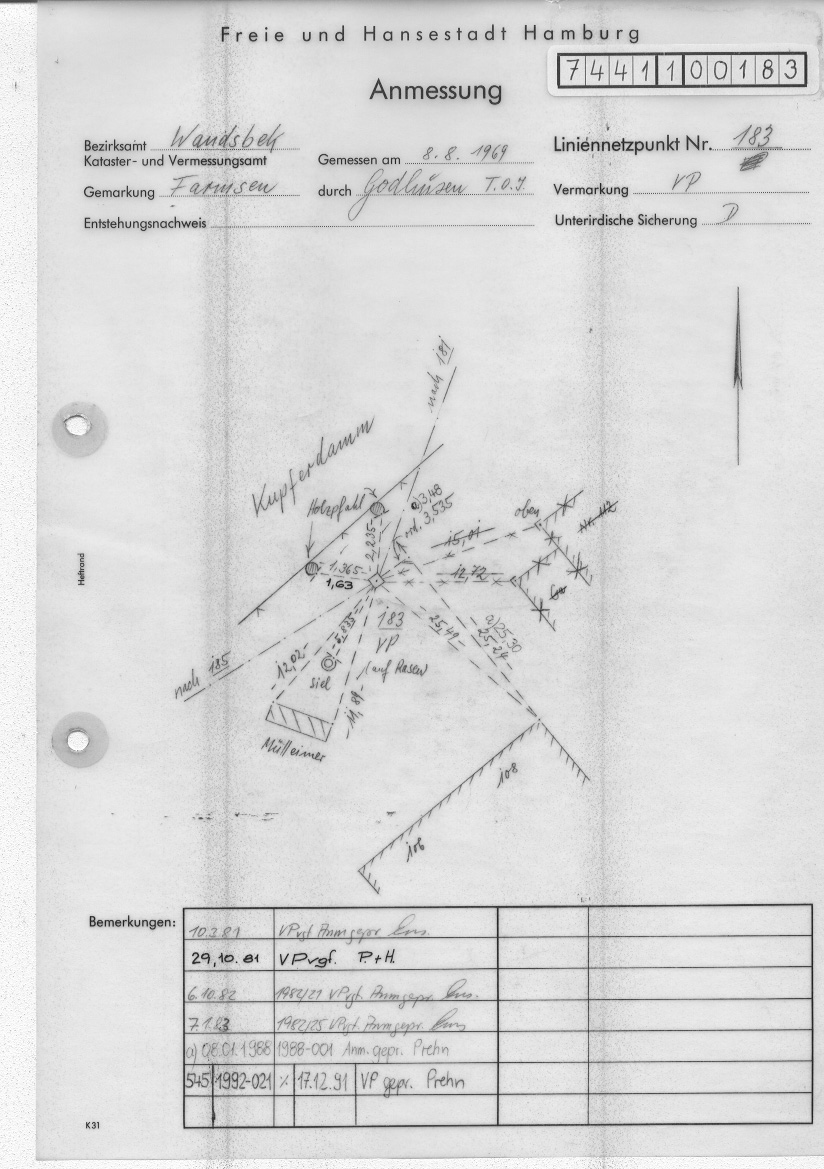 Freie und Hansestadt Hamburg
7441100183
Anmessung
Bezirksamt Wandsbek
Kataster- und Vermessungsamt
Gemessen am 8.8. 1969
Liniennetzpunkt Nr. 183
Gemarkung Farmsen
durch Godhusen T.O.I.
Vermarkung VP
Entstehungsnachweis
Unterirdische Sicherung D
nach 181
Kupferdamm
Holzpfahl
a) 3,48
ord. 3,535
oben
Nr. 112
2,235
15,01
1,365
1,63
12,72
183
VP
(auf Rasen)
25,49
a) 25,30
25,24
5,835
12,02
nach 185
Siel
11,89
Mülleimer
108
106
Heftrand
Bemerkungen:
10.3.81 VPvgf. Anm gepr.
29.10.81 VPvgf. P.+H.
6.10.82 1982/21 VPvgf. Anm gepr.
7.1.83 1982/25 VPvgf. Anm gepr.
a) 08.01.1988 1988-001 Anm. gepr. Prehn
545 1992-021 % 17.12.91 VP gepr. Prehn
K31